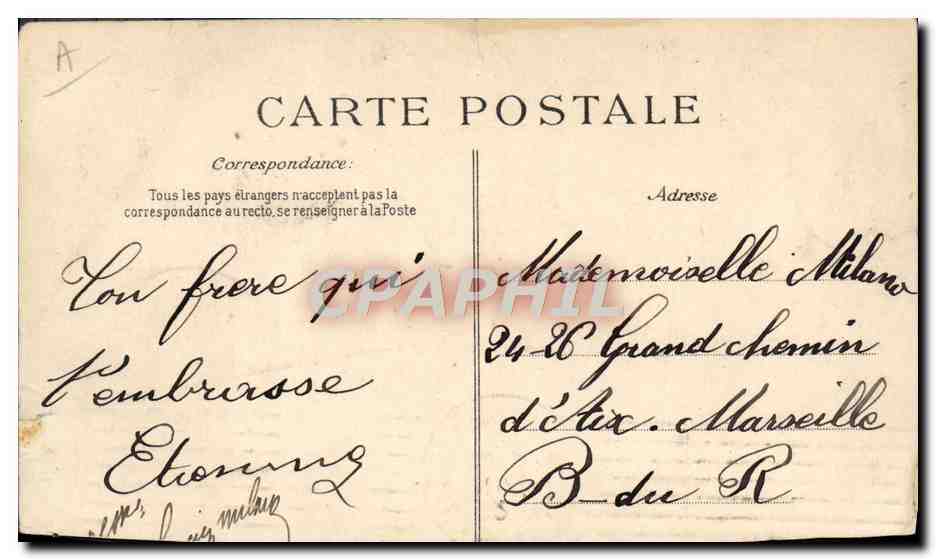 A
CARTE POSTALE
Correspondance:
Tous les pays étrangers n'acceptent pas la
correspondance au recto, se renseigner à la Poste
Adresse
Ton frere qui
t'embrasse
Etienne
Mademoiselle Milano
24-26 Grand chemin
d'Aix. Marseille
B du R
CPAPHIL